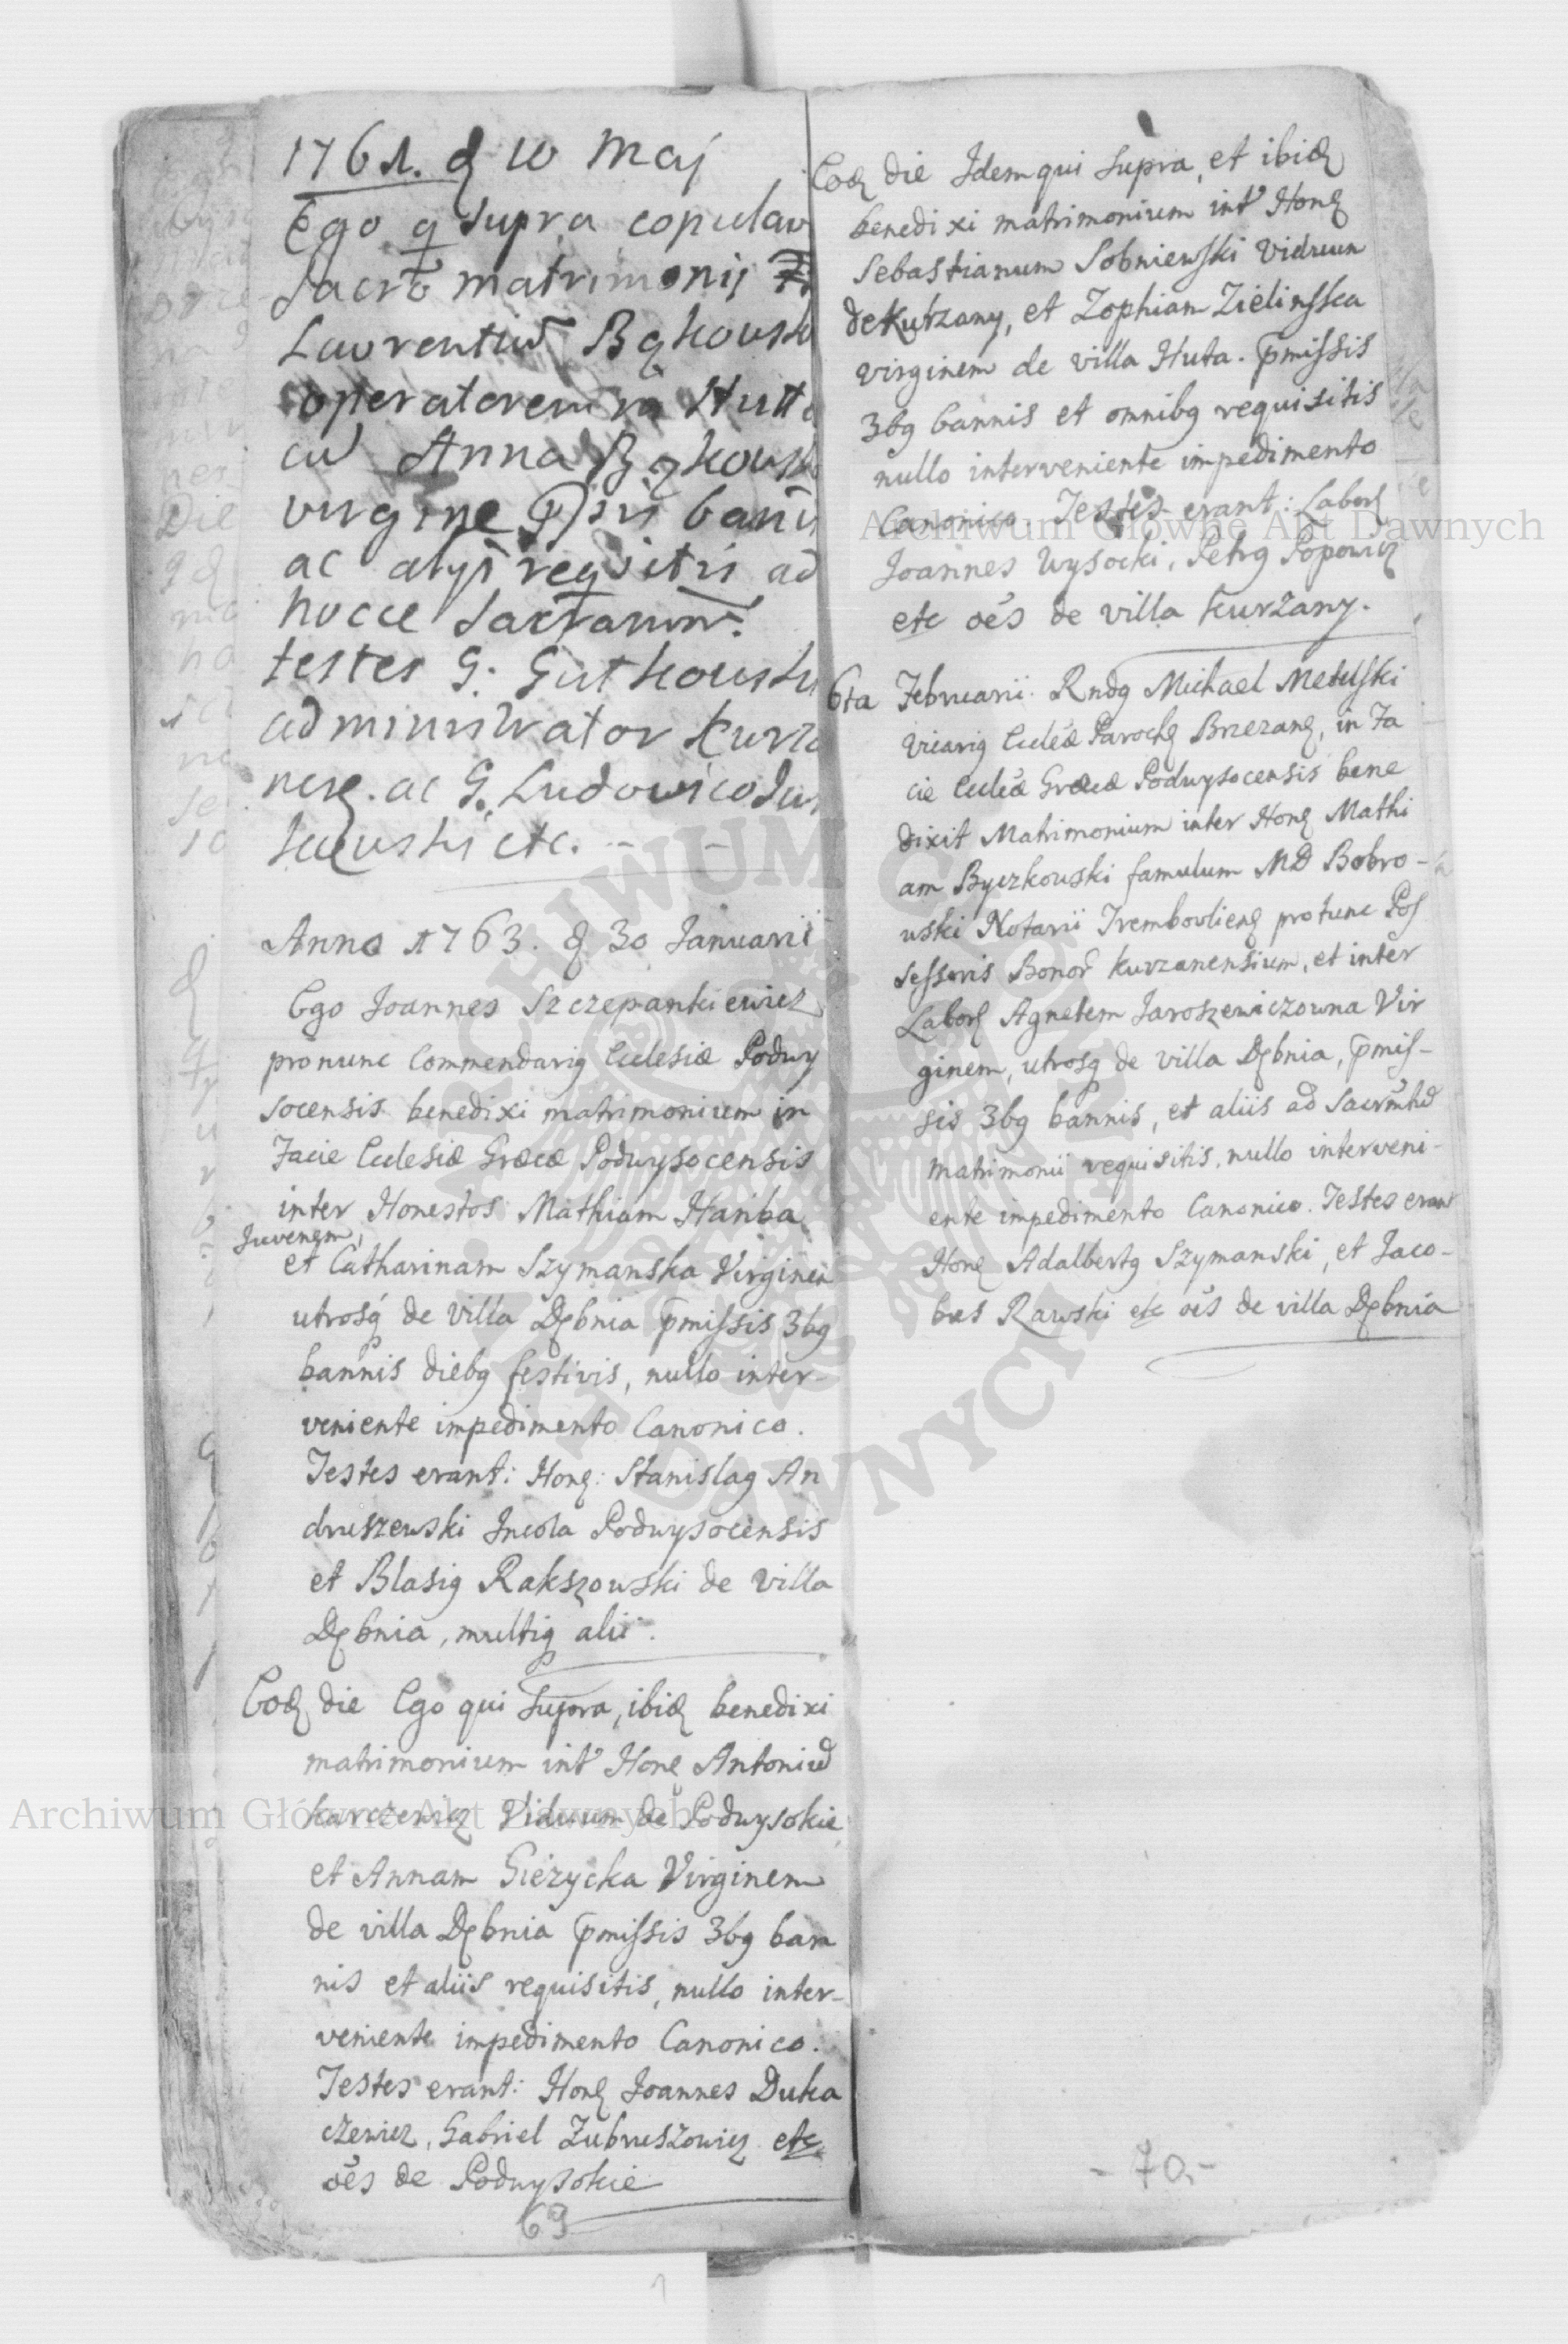 1761. d 10 Maj
Ego q supra copulav
Sacro matrimonij
Laurentiu Bykowsk
operatorem in Hutt
cu Anna Bykowsk
virgine Pssis banis
ac alijs reqsitis ad
hocce Sacranm.
testes G. Gutkowski
administrator Kurza
nens. ac G. Ludowico
etc. - -
Anno 1763. d 30 Januarii
Ego Joannes Szczepankiewicz
pro nunc Commendarig Ecclesiæ Podwy
socensis benedixi matrimonium in
Facie Ecclesiæ Græcæ Podwysocensis
inter Honestos Mathiam Hanba
Juvenem,
et Catharinam Szymanska Virginem
utrosq de villa Dębnia pmissis 3bg
bannis diebg festivis, nullo inter-
veniente impedimento Canonico.
Testes erant: Hong: Stanislag An
druszewski Incola Podwysocensis
et Blasig Rakszowski de villa
Dębnia, multiq alii.
Eod die Ego qui supra, ibid benedixi
matrimonium int Hong Antoniu
Karczewicz Viduum de Podwysokie
et Annam Gieżycka Virginem
de villa Dębnia pmissis 3bg ban
nis et aliis requisitis, nullo inter-
veniente impedimento Canonico.
Testes erant: Hong Joannes Duka
czewicz, Gabriel Zubruszowicz etc
oes de Podwysokie
69
Eod die Idem qui supra, et ibid
benedixi matrimonium int Hong
Sebastianum Sobniewski Viduum
de Kurzany, et Zophiam Zielinska
virginem de villa Huta. pmissis
3bg bannis et omnibg requisitis
nullo interveniente impedimento
Canonico. Testes erant: Labor
Joannes Wysocki, Petrg Popowicz
etc oes de villa Kurzany.
6ta Februarii. Rndg Michael Metelski
Vicarig Eccleæ Paroch Brzezang, in Fa
cie Ecclæ Græcæ Podwysocensis bene
dixit Matrimonium inter Hong Mathi
am Byczkowski famulum MD Bobro-
wski Notarii Trembovlieng pro tunc Pos
sessoris Bonor Kurzanensium, et inter
Labor Agnetem Jaroszewiczowna Vir
ginem, utrosq de villa Dębnia, pmis-
sis 3bg bannis, et aliis ad Sacrmtu
matrimonii requisitis, nullo interveni-
ente impedimento Canonico. Testes erant
Hong Adalbertg Szymanski, et Jaco-
bus Rawski etc oes de villa Dębnia
- 70.-
Archiwum Główne Akt Dawnych
Archiwum Główne Akt Dawnych